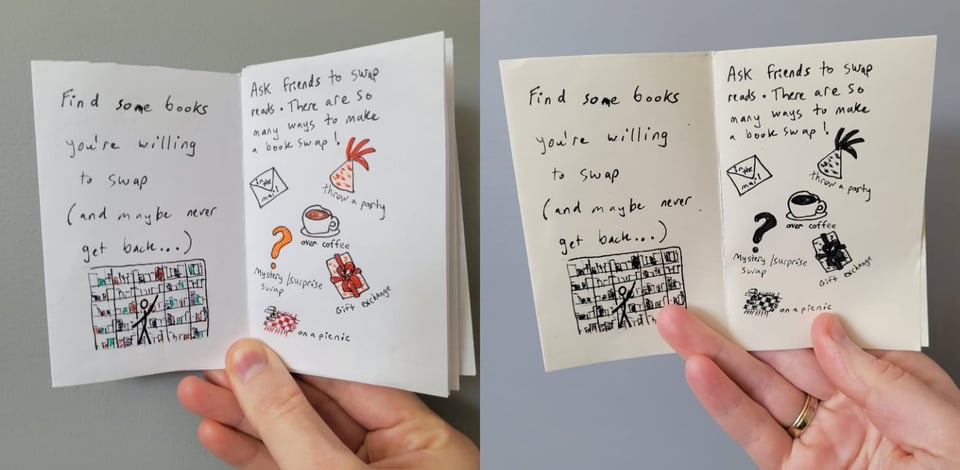 Find some books
you're willing
to swap
(and maybe never
get back...)
Ask friends to swap
reads. There are so
many ways to make
a book swap!
snail
mail
throw a party
over coffee
Mystery/surprise
swap
Gift exchange
on a picnic
Find some books
you're willing
to swap
(and maybe never
get back...)
Ask friends to swap
reads. There are so
many ways to make
a book swap!
snail
mail
throw a party
over coffee
Mystery/surprise
swap
Gift exchange
on a picnic